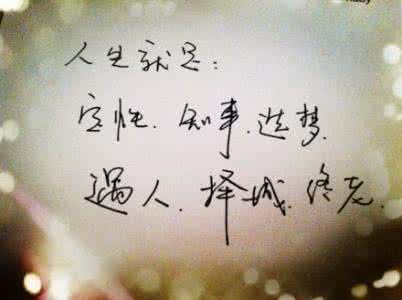 人生就是:
定性、知事、造梦、
遇人、择城、终老.